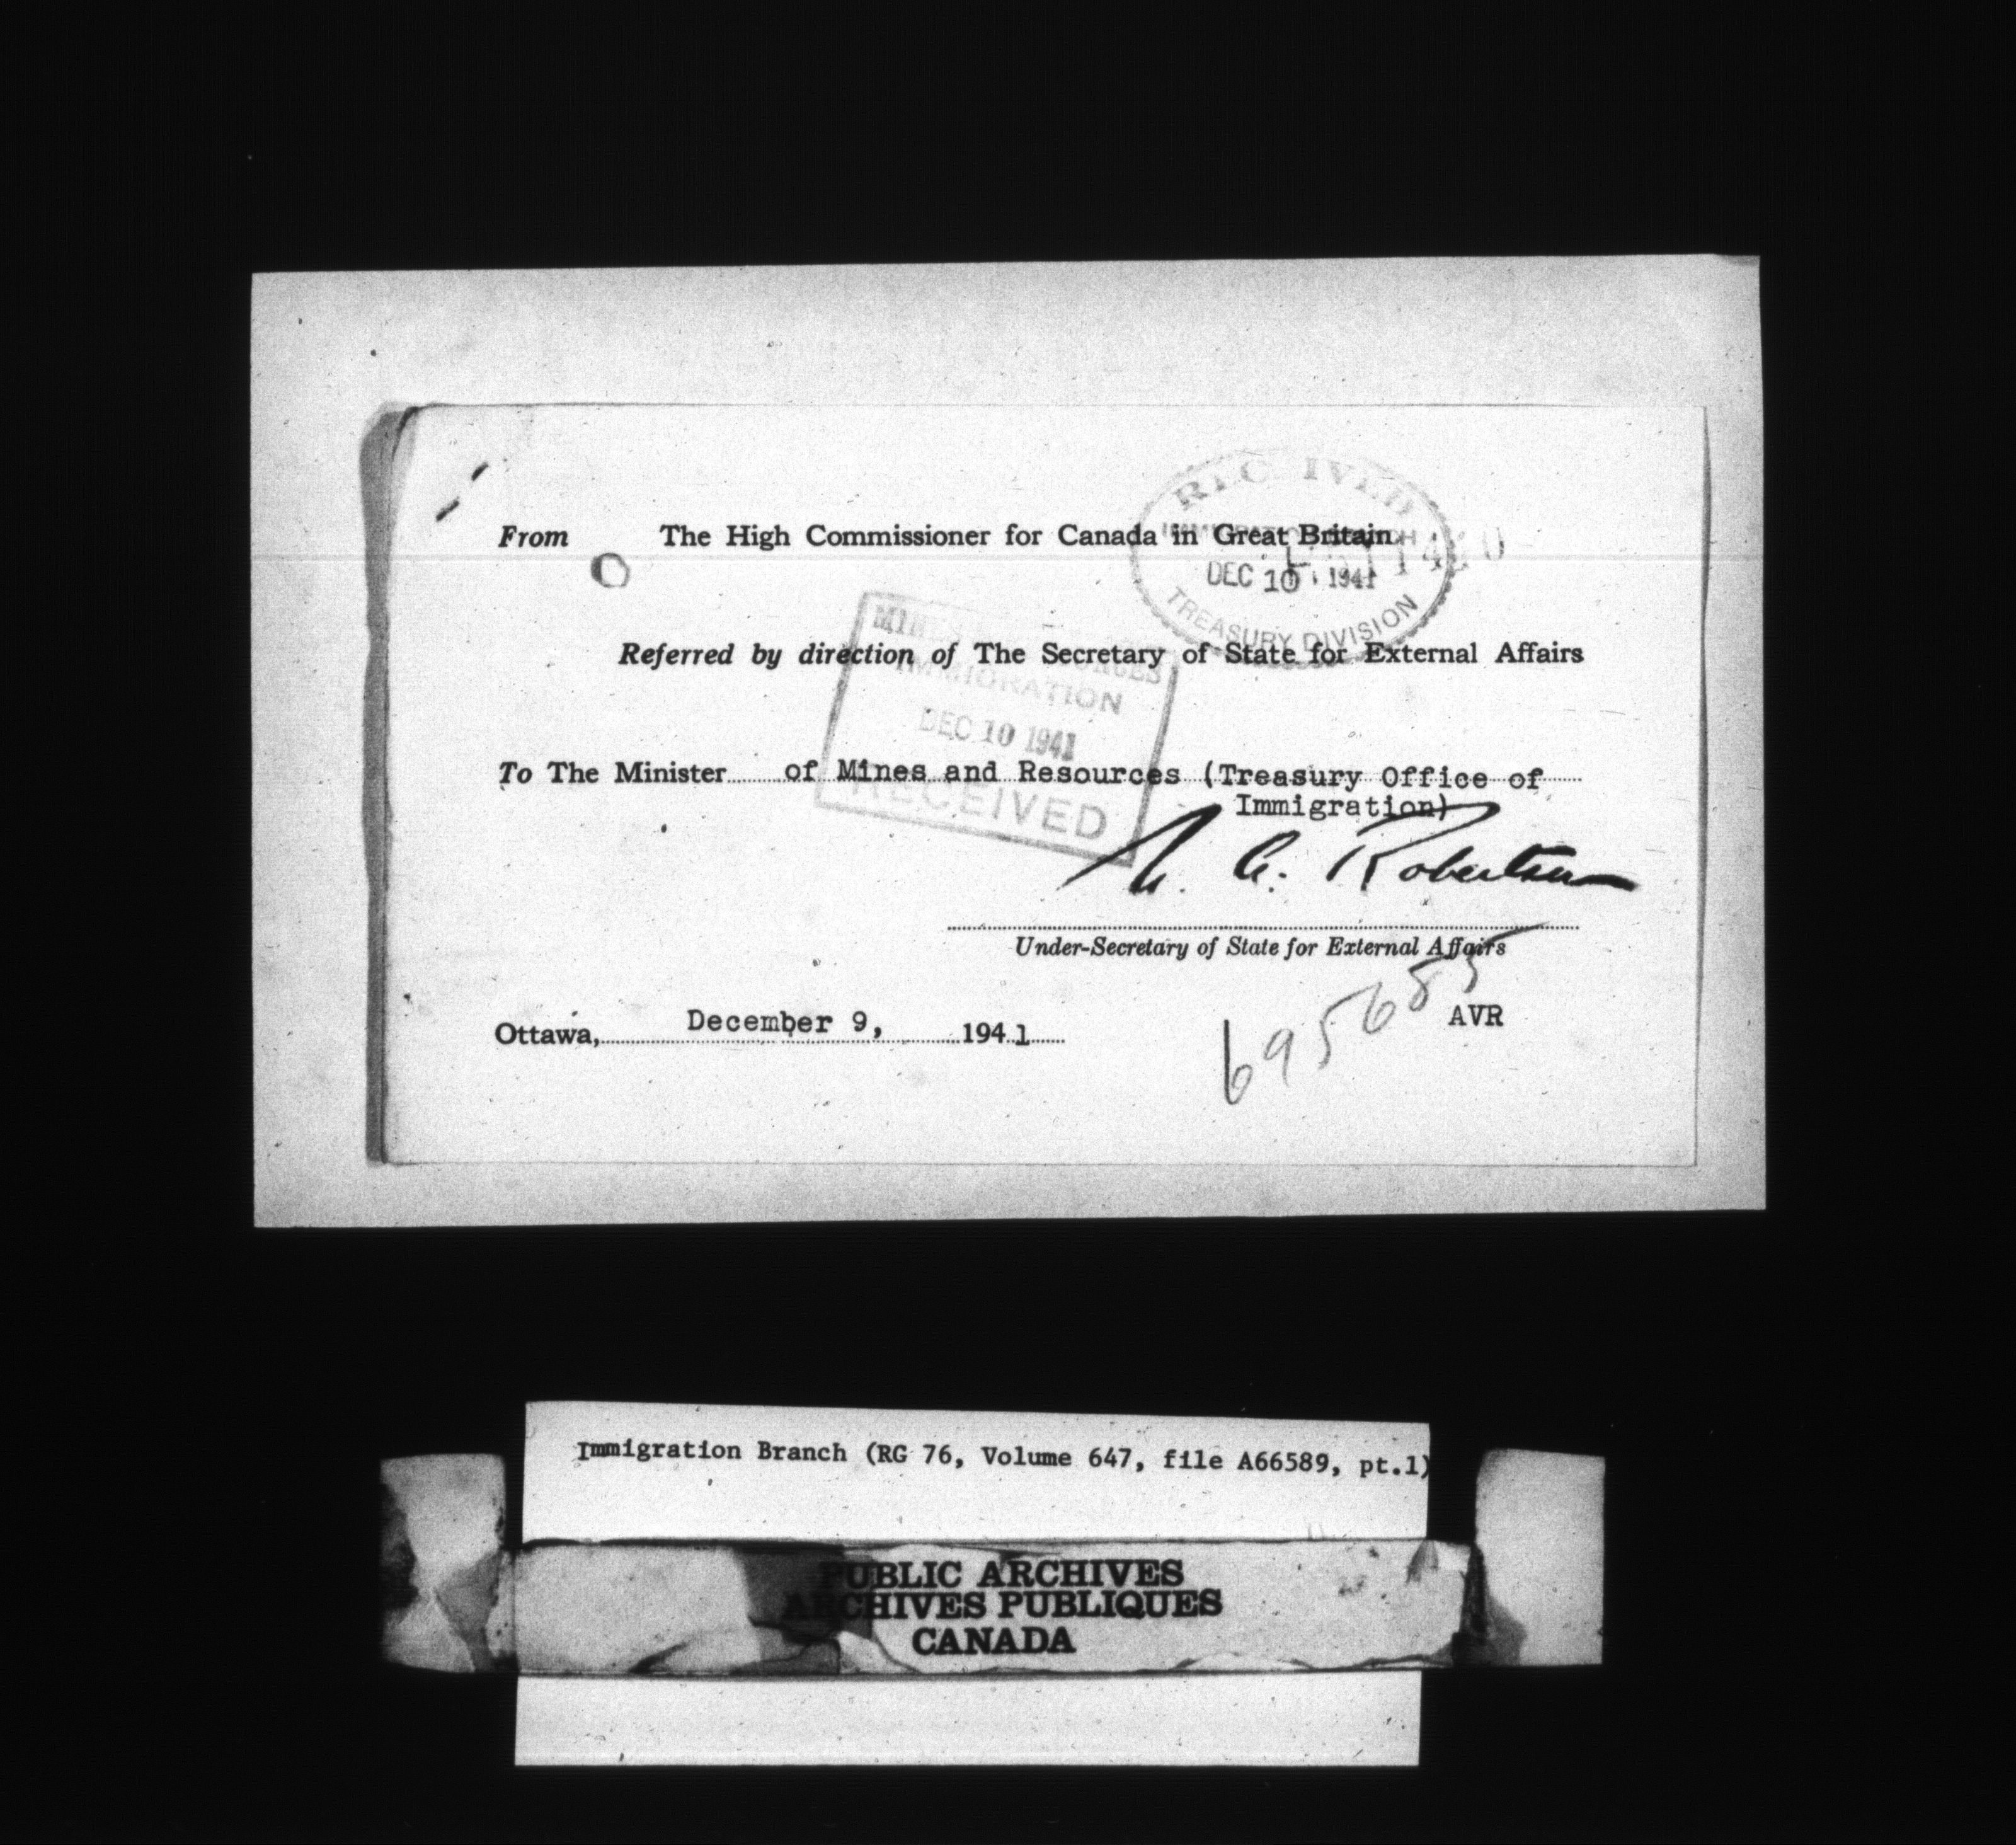 RECEIVED
From The High Commissioner for Canada in Great Britain.
DEC 10 1941
TREASURY DIVISION
Referred by direction of The Secretary of State for External Affairs
IMMIGRATION
DEC 10 1941
To The Minister of Mines and Resources (Treasury Office of
Immigration)
RECEIVED
N. A. Robertson
Under-Secretary of State for External Affairs
695685
AVR
Ottawa, December 9, 1941
Immigration Branch (RG 76, Volume 647, file A66589, pt.1)
PUBLIC ARCHIVES
ARCHIVES PUBLIQUES
CANADA